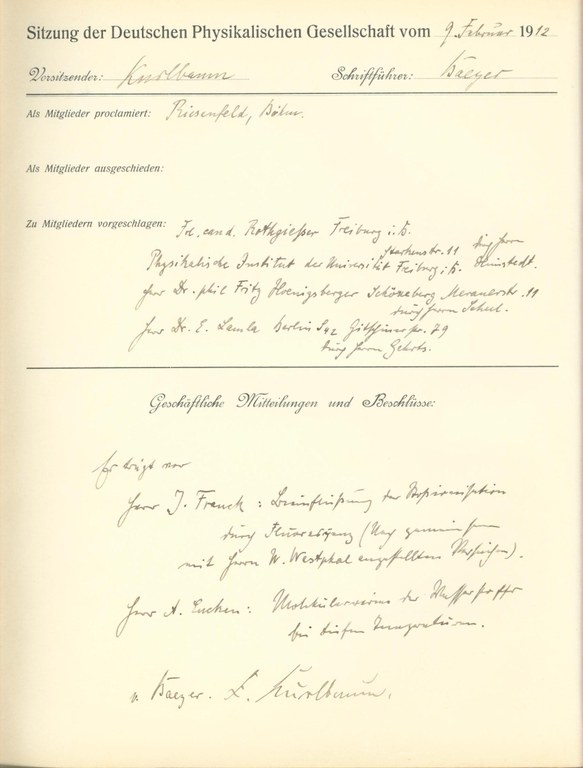 Sitzung der Deutschen Physikalischen Gesellschaft vom 9. Februar 1912
Vorsitzender: Kurlbaum Schriftführer: Baeyer
Als Mitglieder proclamiert: Riesenfeld, Böhm.
Als Mitglieder ausgeschieden:
Zu Mitgliedern vorgeschlagen: Frl. cand. Rothgießer Freiburg i. B.
Starkenstr. 11 durch Herrn
Physikalische Institut der Universität Freiburg i. B. Himstedt.
Herr Dr. phil Fritz Hoenigsberger Schöneberg Meranerstr. 11
durch Herrn Scheel.
Herr Dr. E. Lamla Berlin S42 Gitschinerstr. 79
durch Herrn Gehrts.
Geschäftliche Mitteilungen und Beschlüsse:
Es trägt vor
Herr J. Franck: Beeinflußung der Stoßionisation
durch Fluoreszenz (Nach gemeinsam
mit Herrn W. Westphal angestellten Versuchen).
Herr A. Eucken: Molekularwärme des Wasserstoffs
bei tiefen Temperaturen.
v. Baeyer. F. Kurlbaum.